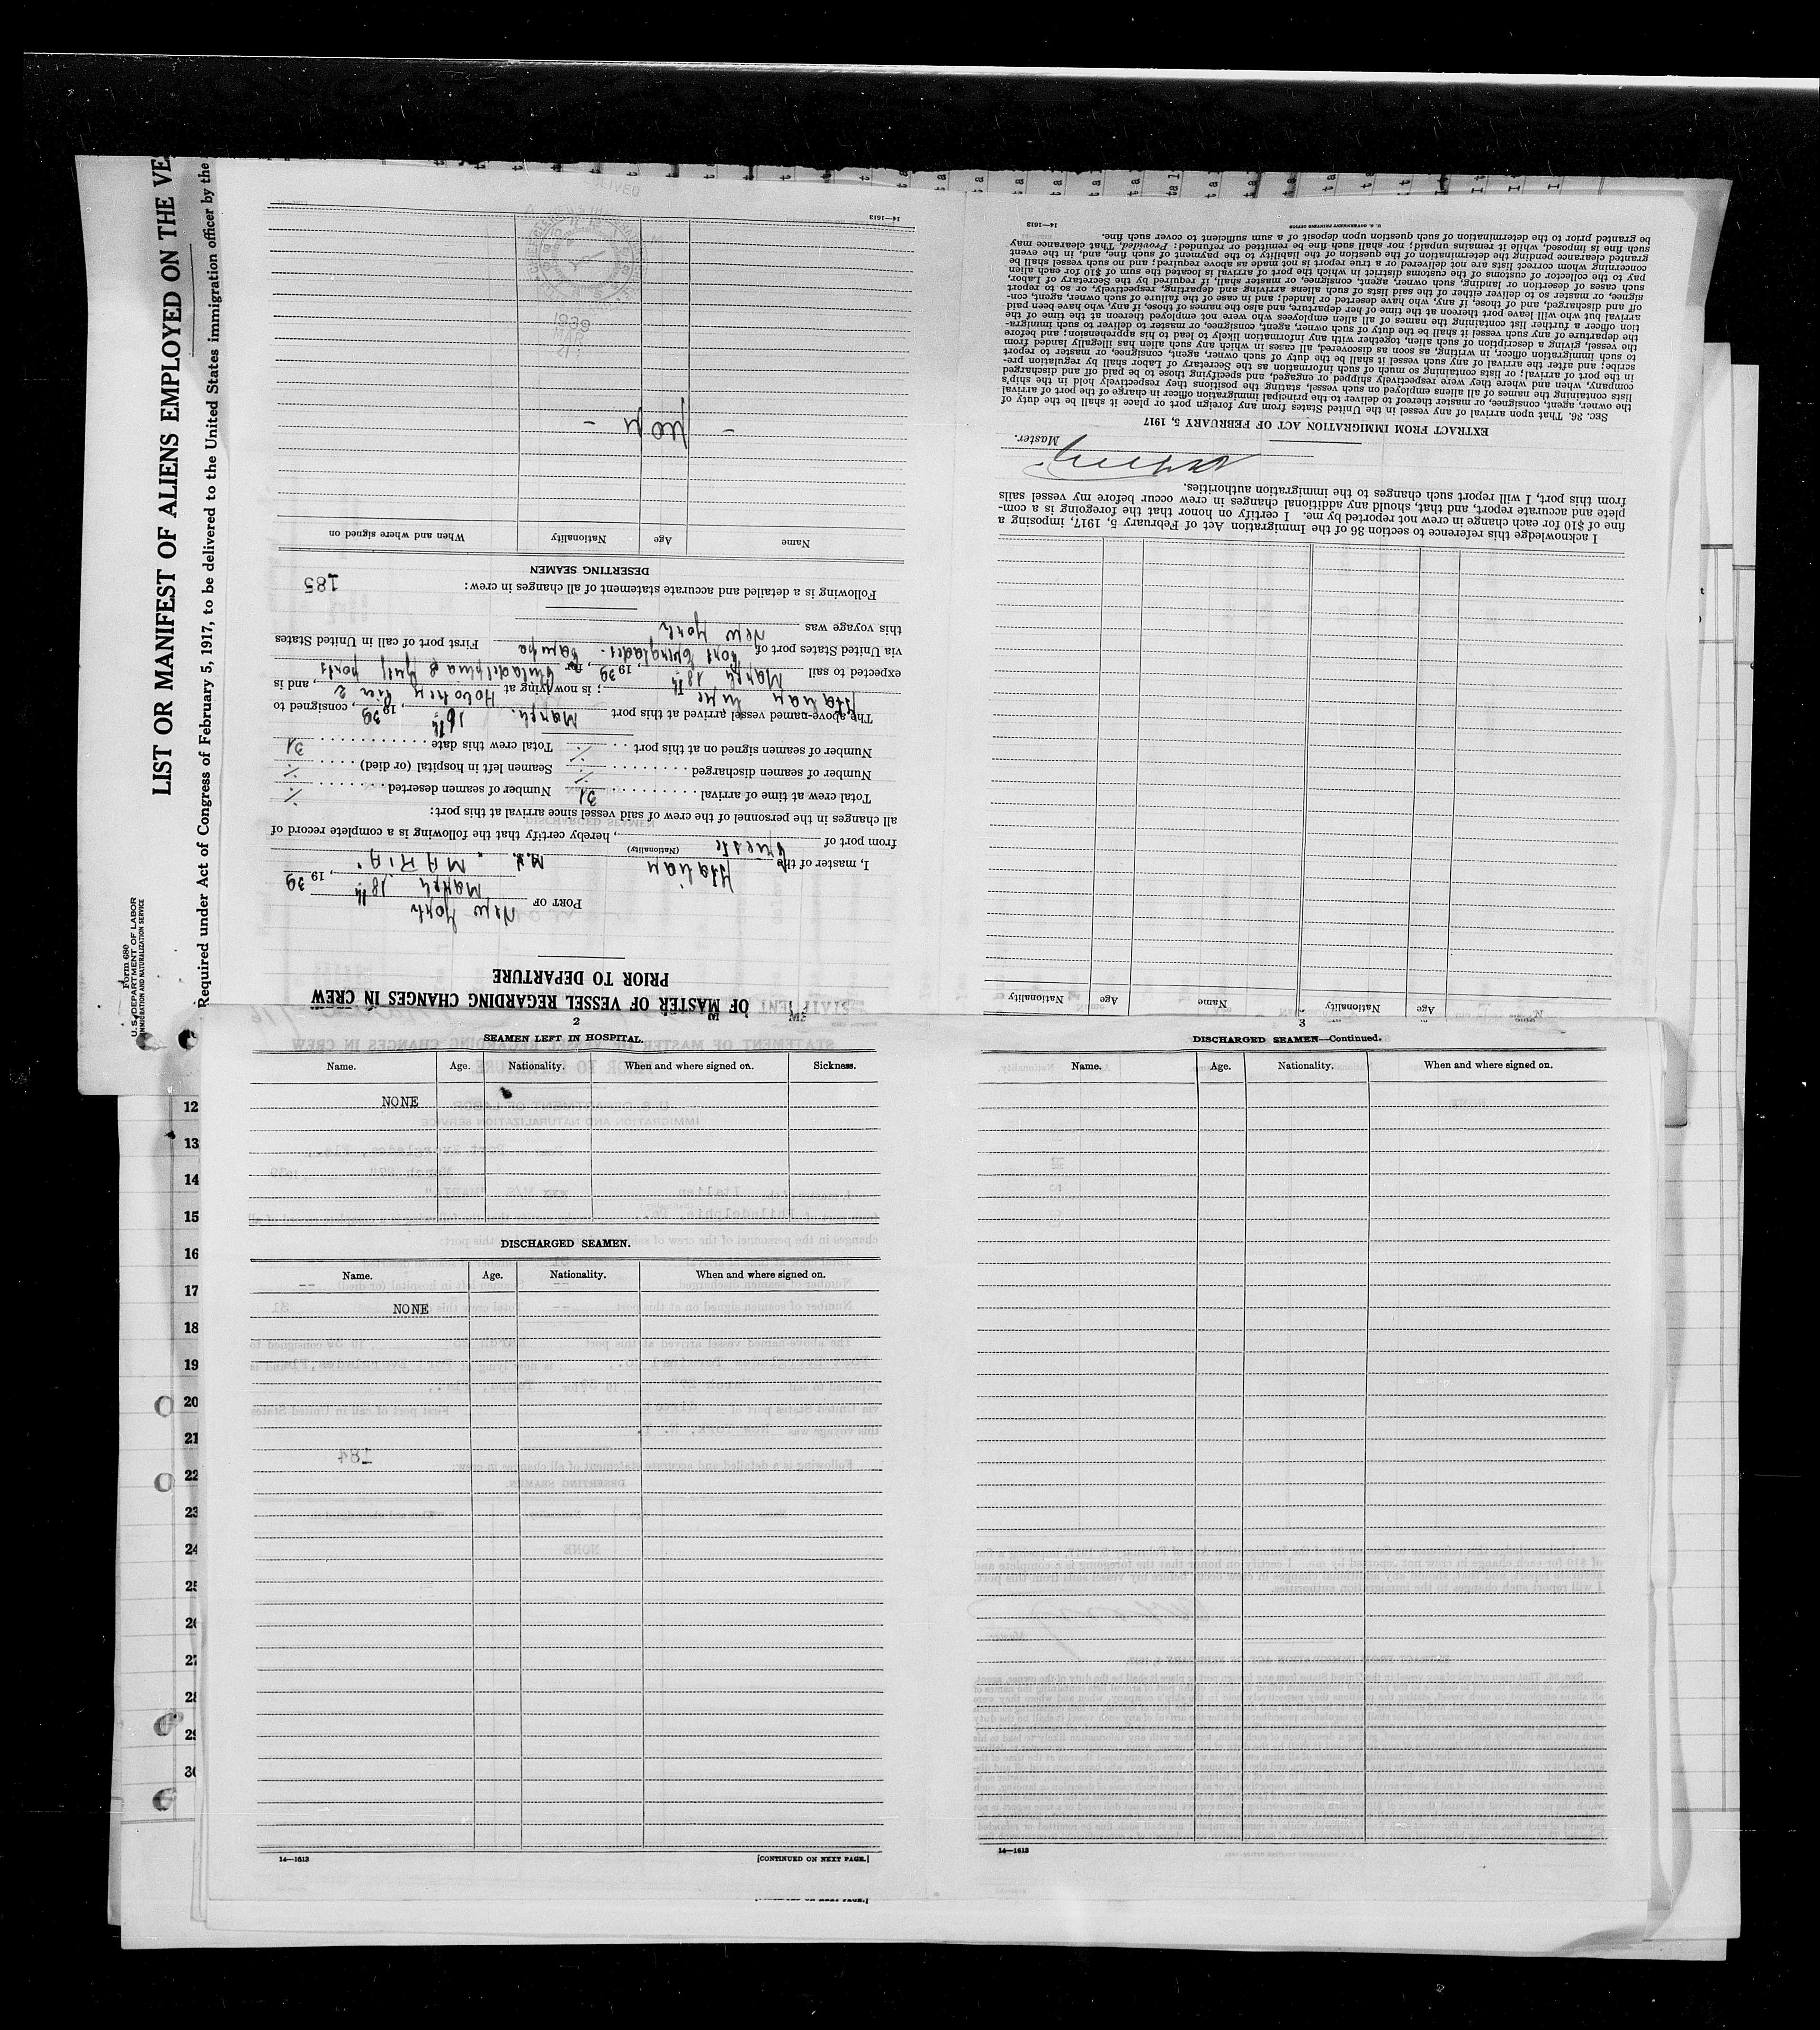 Form 680
U. S. DEPARTMENT OF LABOR
IMMIGRATION AND NATURALIZATION SERVICE
LIST OR MANIFEST OF ALIENS EMPLOYED ON THE VE
Required under Act of Congress of February 5, 1917, to be delivered to the United States immigration officer by the
OF MASTER OF VESSEL REGARDING CHANGES IN CREW
PRIOR TO DEPARTURE
PORT OF New York
March 18th, 19 39
I, master of the Italian M.S. "MARIA"
(Nationality)
from port of Trieste, hereby certify that the following is a complete record of
all changes in the personnel of the crew of said vessel since arrival at this port:
Total crew at time of arrival 31 Number of seamen deserted /
Number of seamen discharged / Seamen left in hospital (or died) /
Number of seamen signed on at this port / Total crew this date 31
The above-named vessel arrived at this port March 16th, 19 39, consigned to
Italian Line; is now lying at Hoboken Pier 2, and is
expected to sail March 18th, 19 39, for Philadelphia & Gulf ports
via United States port of Port Everglades - Tampa First port of call in United States
this voyage was New York
Following is a detailed and accurate statement of all changes in crew: 185
DESERTING SEAMEN
Name Age Nationality When and where signed on
1939
MAR
21
14—1613
Name Age Nationality Name Age Nationality
I acknowledge this reference to section 36 of the Immigration Act of February 5, 1917, imposing a
fine of $10 for each change in crew not reported by me. I certify on honor that the foregoing is a com-
plete and accurate report, and that, should any additional changes in crew occur before my vessel sails
from this port, I will report such changes to the immigration authorities.
Master.
EXTRACT FROM IMMIGRATION ACT OF FEBRUARY 5, 1917
SEC. 36. That upon arrival of any vessel in the United States from any foreign port or place it shall be the duty of
the owner, agent, consignee, or master thereof to deliver to the principal immigration officer in charge of the port of arrival
lists containing the names of all aliens employed on such vessel, stating the positions they respectively hold in the ship's
company, when and where they were respectively shipped or engaged, and specifying those to be paid off and discharged
in the port of arrival; or lists containing so much of such information as the Secretary of Labor shall by regulation pre-
scribe; and after the arrival of any such vessel it shall be the duty of such owner, agent, consignee, or master to report
to such immigration officer, in writing, as soon as discovered, all cases in which any such alien has illegally landed from
the vessel, giving a description of such alien, together with any information likely to lead to his apprehension; and before
the departure of any such vessel it shall be the duty of such owner, agent, consignee, or master to deliver to such immigra-
tion officer a further list containing the names of all alien employees who were not employed thereon at the time of the
arrival but who will leave port thereon at the time of her departure, and also the names of those, if any, who have been paid
off and discharged, and of those, if any, who have deserted or landed; and in case of the failure of such owner, agent, con-
signee, or master so to deliver either of the said lists of such aliens arriving and departing, respectively, or so to report
such cases of desertion or landing, such owner, agent, consignee, or master shall, if required by the Secretary of Labor,
pay to the collector of customs of the customs district in which the port of arrival is located the sum of $10 for each alien
concerning whom correct lists are not delivered or a true report is not made as above required; and no such vessel shall be
granted clearance pending the determination of the question of the liability to the payment of such fine, and, in the event
such fine is imposed, while it remains unpaid; nor shall such fine be remitted or refunded: Provided, That clearance may
be granted prior to the determination of such question upon deposit of a sum sufficient to cover such fine.
U. S. GOVERNMENT PRINTING OFFICE 14—1613
2
SEAMEN LEFT IN HOSPITAL.
Name. Age. Nationality. When and where signed on. Sickness.
NONE
DISCHARGED SEAMEN.
Name. Age. Nationality. When and where signed on.
NONE
14—1613 [CONTINUED ON NEXT PAGE.]
3
DISCHARGED SEAMEN—Continued.
Name. Age. Nationality. When and where signed on.
14—1613
12
13
14
15
16
17
18
19
20
21
22
23
24